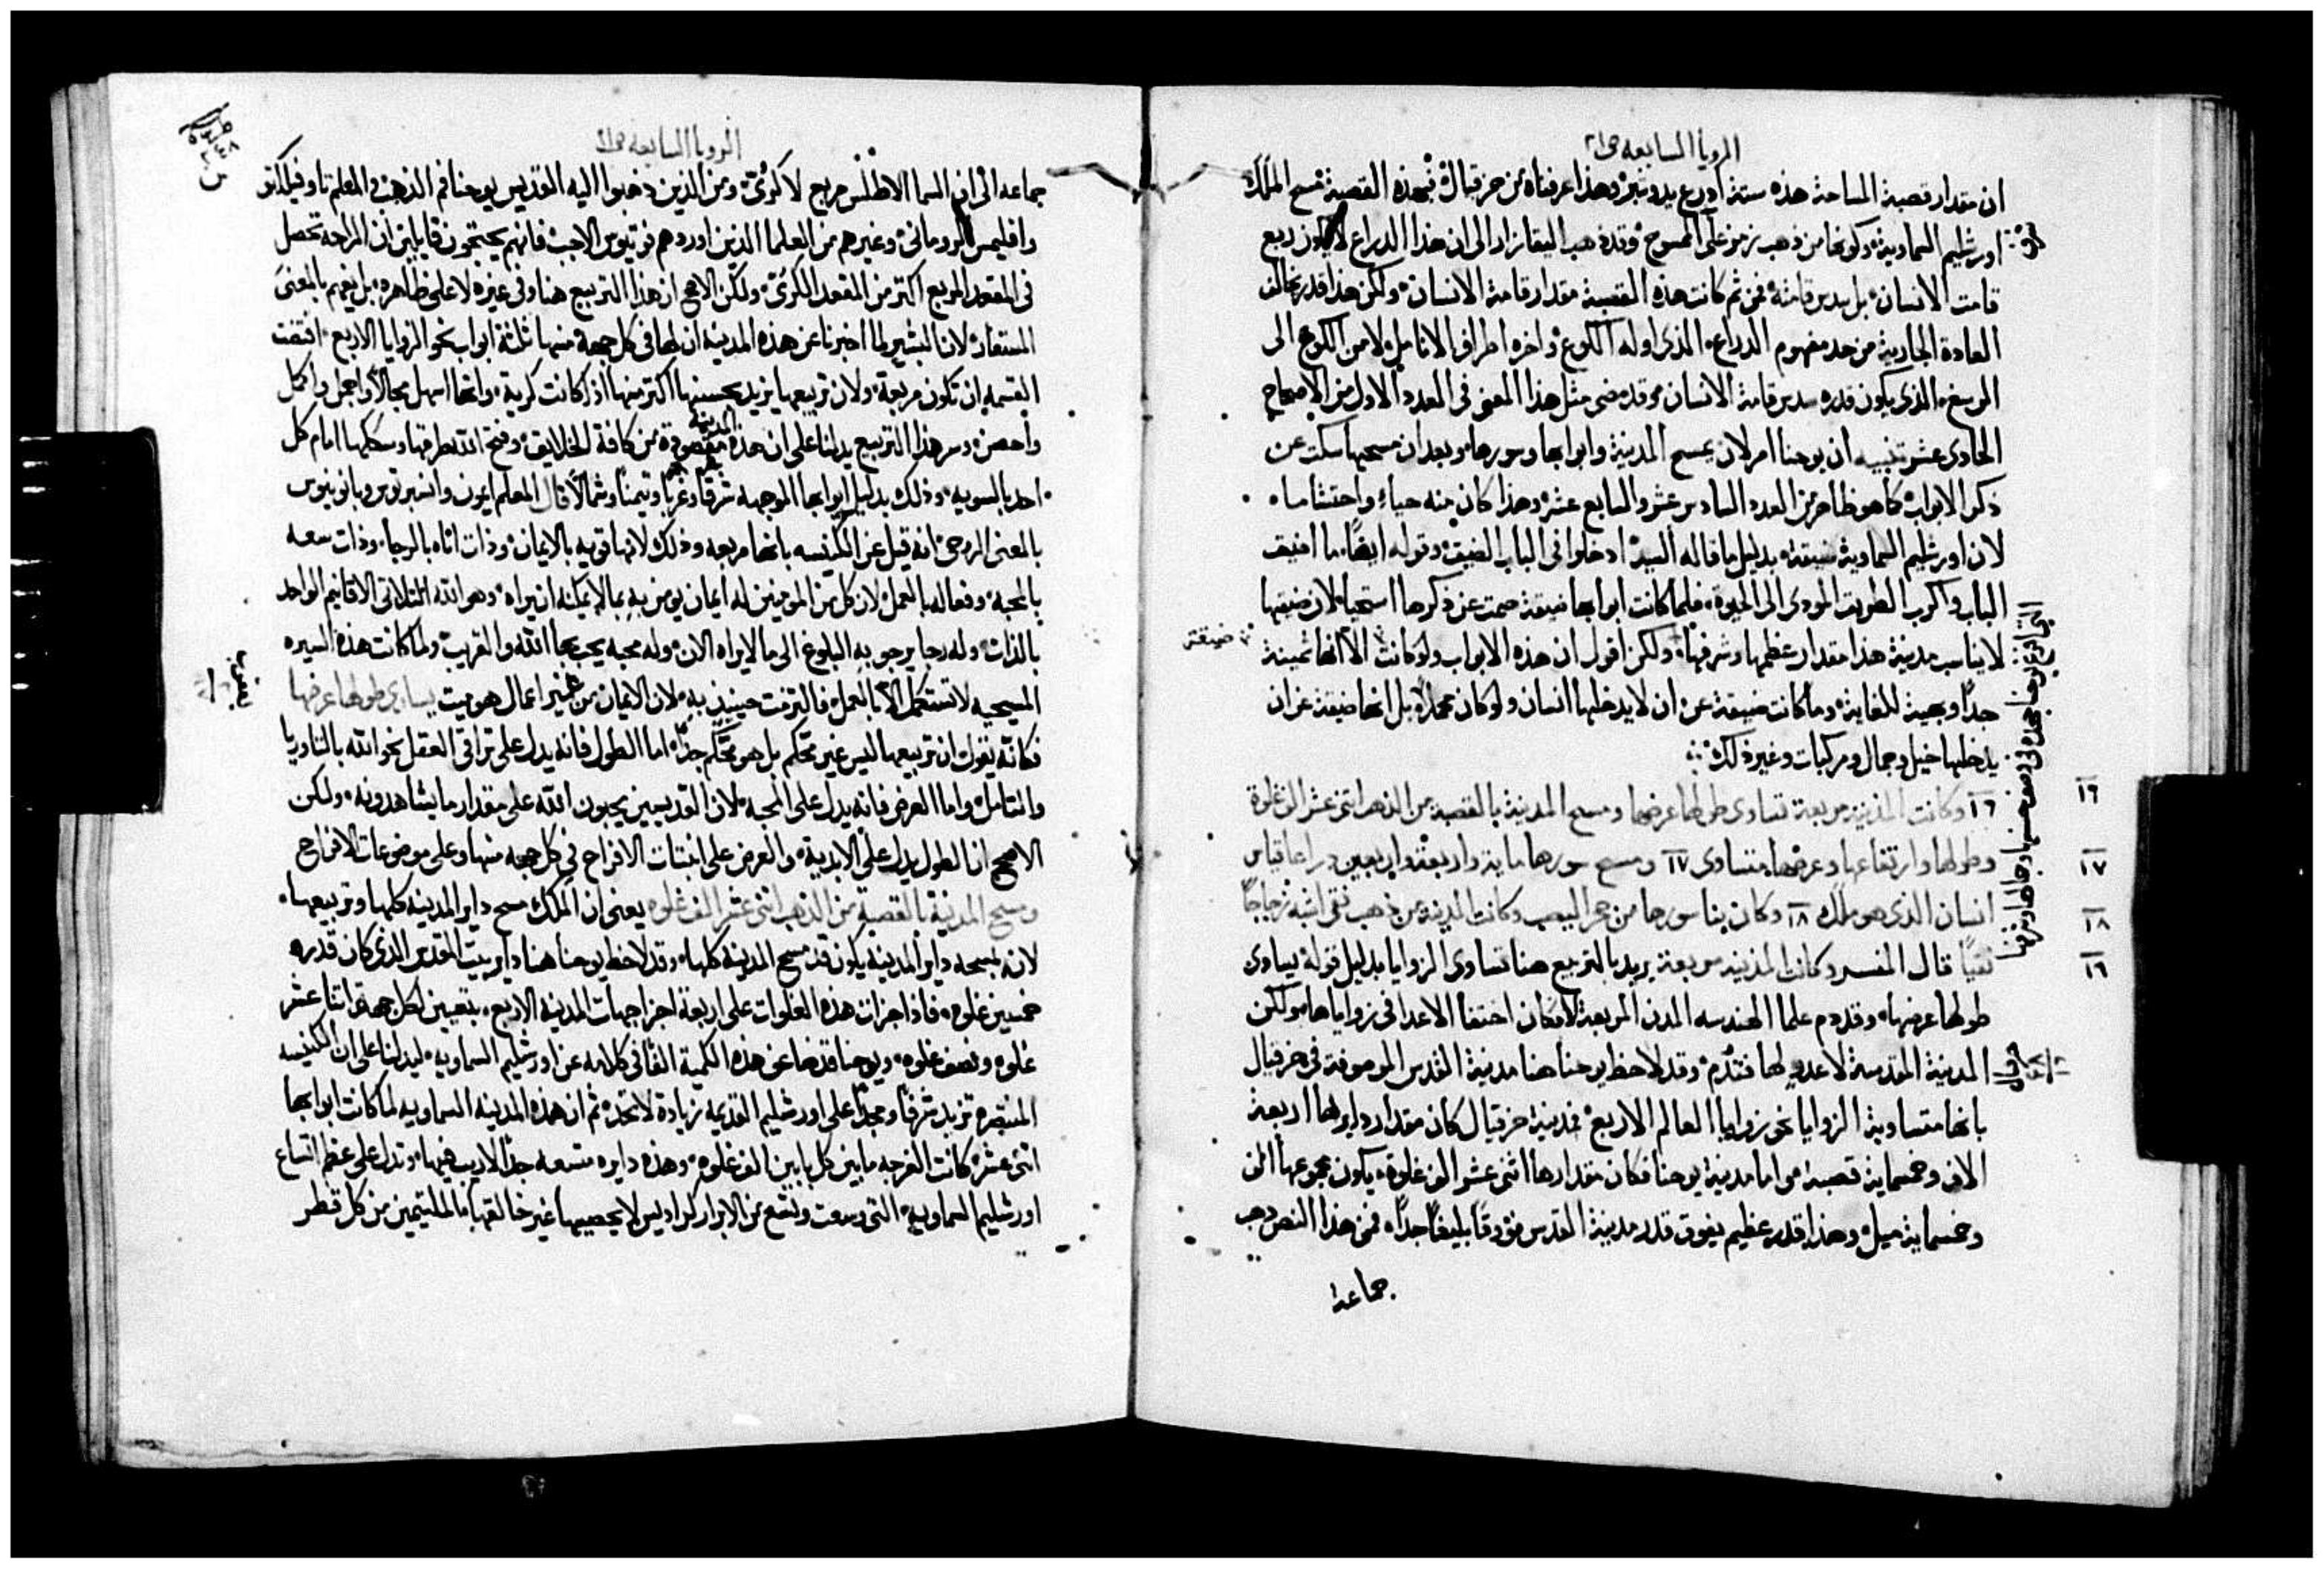 الرويا السابعه ص٢١
ان مقدار قصبة المساحة هذه ستة ادرع يد وشبر وهذا عرفناه من حزقيال فبهذه القصبة مسح الملك
اورشليم السماوية وكونها من ذهب رمز على الممسوح وقد ذهب اليقازار الى ان هذا الدراع لا يكون ربع
قامت الانسان بل سدس قامته فمن ثم كانت هذه القصبة مقدار قامة الانسان ولكن هذا قدر يخالف
العادة الجارية من حد مفهوم الدراع الذي اوله الكوع واخره اطراف الانامل لا من الكوع الى
الرسغ الذي يكون قدره سدس قامة الانسان وقد مضى مثل هذا المعنى في العدد الاول من الاصحاح
الحادي عشر تنبيه ان يوحنا امر لان يمسح المدينة وابوابها وسورها وبعد ان مسحها سكت عن
ذكر الابواب كما هو ظاهر من العدد السادس عشر والسابع عشر وهذا كان منه حياء واحتشاما
لان اورشليم السماوية ضيقة بدليل ما قاله السيد ادخلوا في الباب الضيق وقوله ايضًا ما اضيق
الباب واكرب الطريق المودي الى الحيوة فلما كانت ابوابها ضيقة صمت عن ذكرها استحياء لان ضيقها
لا يناسب مدينة هذا مقدار عظمها وشرفها ولكن اقول ان هذه الابواب ولو كانت الا انها ثمينة
ضيقة
جدًا وبهية للغاية وما كانت ضيقة عن ان لا يدخلها انسان ولو كان محملًا بل انها ضيقة عن ان
يدخلها خيل وجمال ومركبات وغير ذلك
١٦ وكانت المدينة مربعة تساوي طولها عرضها ومسح المدينة بالقصبة من الذهب اثنى عشر الف غلوة
وطولها وارتفاعها وعرضها متساوي ١٧ ومسح سورها ماية واربعة واربعين دراعا قياس
انسان الذي هو ملاك ١٨ وكان بنا سورها من حجر اليصب وكانت المدينة من ذهب نقي اشبه زجاجًا
نقيًا قال المفسر وكانت المدينة مربعة يريد بالتربيع هنا تساوي الزوايا بدليل قوله يساوي
طولها عرضها وقد ذم علما الهندسه المدن المربعة لامكان اختفا الاعدا في زواياها ولكن
المدينة المقدسة لا عدو لها فتذم وقد لاحظ يوحنا هنا مدينة القدس الموصوفة في حزقيال
بانها متساوية الزوايا نحو زوايا العالم الاربع فمدينة حزقيال كان مقدار دايرلها اربعة
الاف وخمسماية قصبة اما مدينة يوحنا فكان مقدارها اثنى عشر الف غلوة يكون مجموعها الف
وخمسماية ميل وهذا قدر عظيم يفوق قدر مدينة القدس فوقًا بليغًا جدًا فمن هذا النص ذهب
جماعة
١٦
١٧
١٨
١٦
الرويا السابعه ص٢١
جماعه الى ان السما الاطلس مربع لا كروي ومن الذين ذهبوا اليه القديس يوحنا فم الذهب والمعلم تاوفيلكتو
واقليمس الروماني وغيرهم من العلما الذين اوردهم فوتيوس الاجب فانهم يحتجون قايلين ان الراحه تحصل
في المقعد المربع اكثر من المقعد الكروي ولكن الاصح ان هذا التربيع هنا وفي غيره لا على ظاهره بل يفهم بالمعنى
المستفاد لان البشير لما اخبرنا عن هذه المدينة ان لها في كل جهة منها ثلثة ابواب نحو الزوايا الاربع اقتضت
القسمه ان تكون مربعة ولان تربيعها يزيد تحسينها اكثر منها اذ كانت كرية وانها اسهل مجالًا واجمل واكمل
واحصن وسر هذا التربيع يدلنا على ان هذه المدينة مقصودة من كافة الخلايق وفتح الله طرقها وسككها امام كل
احد بالسويه وذلك بدليل ابوابها الموجهه شرقًا وغربًا وتيمنًا وشمالًا قال المعلم ايمون وانسبرتوس وبانونيوس
بالمعنى الروحي انه قيل عن الكنيسه بانها مربعه وذلك لانها قويه بالايمان وذات اناه بالرجاء وذات سعه
بالمحبه وفعاله بالعمل لان كل من المومنين له ايمان يومن به بما لا يمكنه ان يراه وهو الله المثلاثي الاقانيم الواحد
بالذات وله رجا يرجو به البلوغ الى ما لا يراه الان وله محبه يحب بها الله والقريب ولما كانت هذه السيره
المسيحيه لا تستكمل الا بالعمل فالتزمت حينيذ به لان الايمان من غير اعمال هو ميت يساوي طولها عرضها
فكانه يقول ان تربيعها ليس غير محكم بل هو محكم جدًا اما الطول فانه يدل على تراقي العقل نحو الله بالتاوريا
والتامل واما العرض فانه يدل على المحبه لان القديسين يحبون الله على مقدار ما يشاهدونه ولكن
الاصح ان الطول يدل على الابدية والعرض على انبثات الافراح في كل جهه منها وعلى موضوعات الافراح
ومسح المدينة بالقصبة من الذهب اثنى عشر الف غلوه يعني ان الملاك مسح داير المدينه كلها وتربيعها
لانه بمسحه داير المدينه يكون قد مسح المدينه كلها وقد لاحظ يوحنا هنا داير بيت القدس الذي كان قدره
خمسين غلوه فاذا جزات هذه الغلوات على اربعة اجزا جهات المدينه الاربع يتعين لكل جهة اثنا عشر
غلوه ونصف غلوه ويوحنا قد ضاعف هذه الكمية الفًا في كلامه عن اورشليم السماويه ليدلنا على ان الكنيسه
المنتصره تزيد شرفًا ومجدًا على اورشليم القديمه زيادة لا تحد ثم ان هذه المدينه السماويه لما كانت ابوابها
اثنى عشر كانت الفرجه ما بين كل بابين الف غلوه وهذه دايره متسعه جدًا لا ريب فيها وتدل على عظم اتساع
اورشليم السماويه التي وسعت وتسع من الابرار كراديس لا يحصيها غير خالقها بالملتيمين من كل قطر